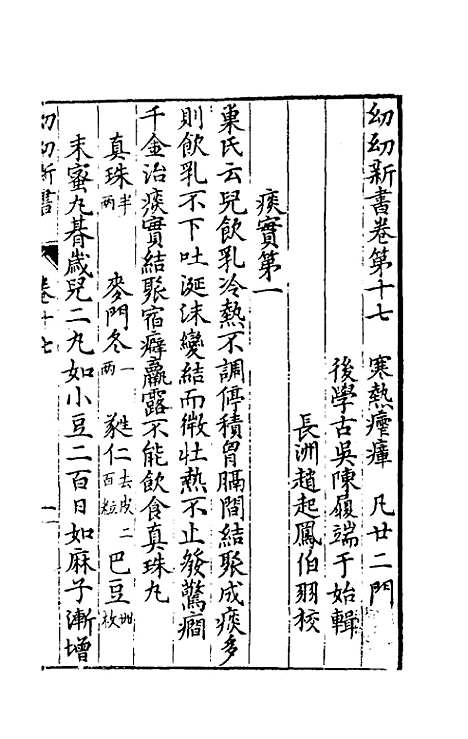 幼幼新書卷第十七　寒熱瘧㾮　凡廿二門
後學古吳陳履端于始輯
長洲趙起鳳伯羽校
痰實第一
巢氏云兒飲乳冷熱不調停積胷膈間結聚成痰多
則飲乳不下吐涎沫變結而微壯熱不止發驚癎
千金治痰實結聚宿癖羸露不能飲食真珠丸
真珠半兩　麥門冬一兩　蕤仁去皮二百粒　巴豆卌枚
末蜜丸朞歲兒二丸如小豆二百日如麻子漸增
幼幼新書　卷十七　一